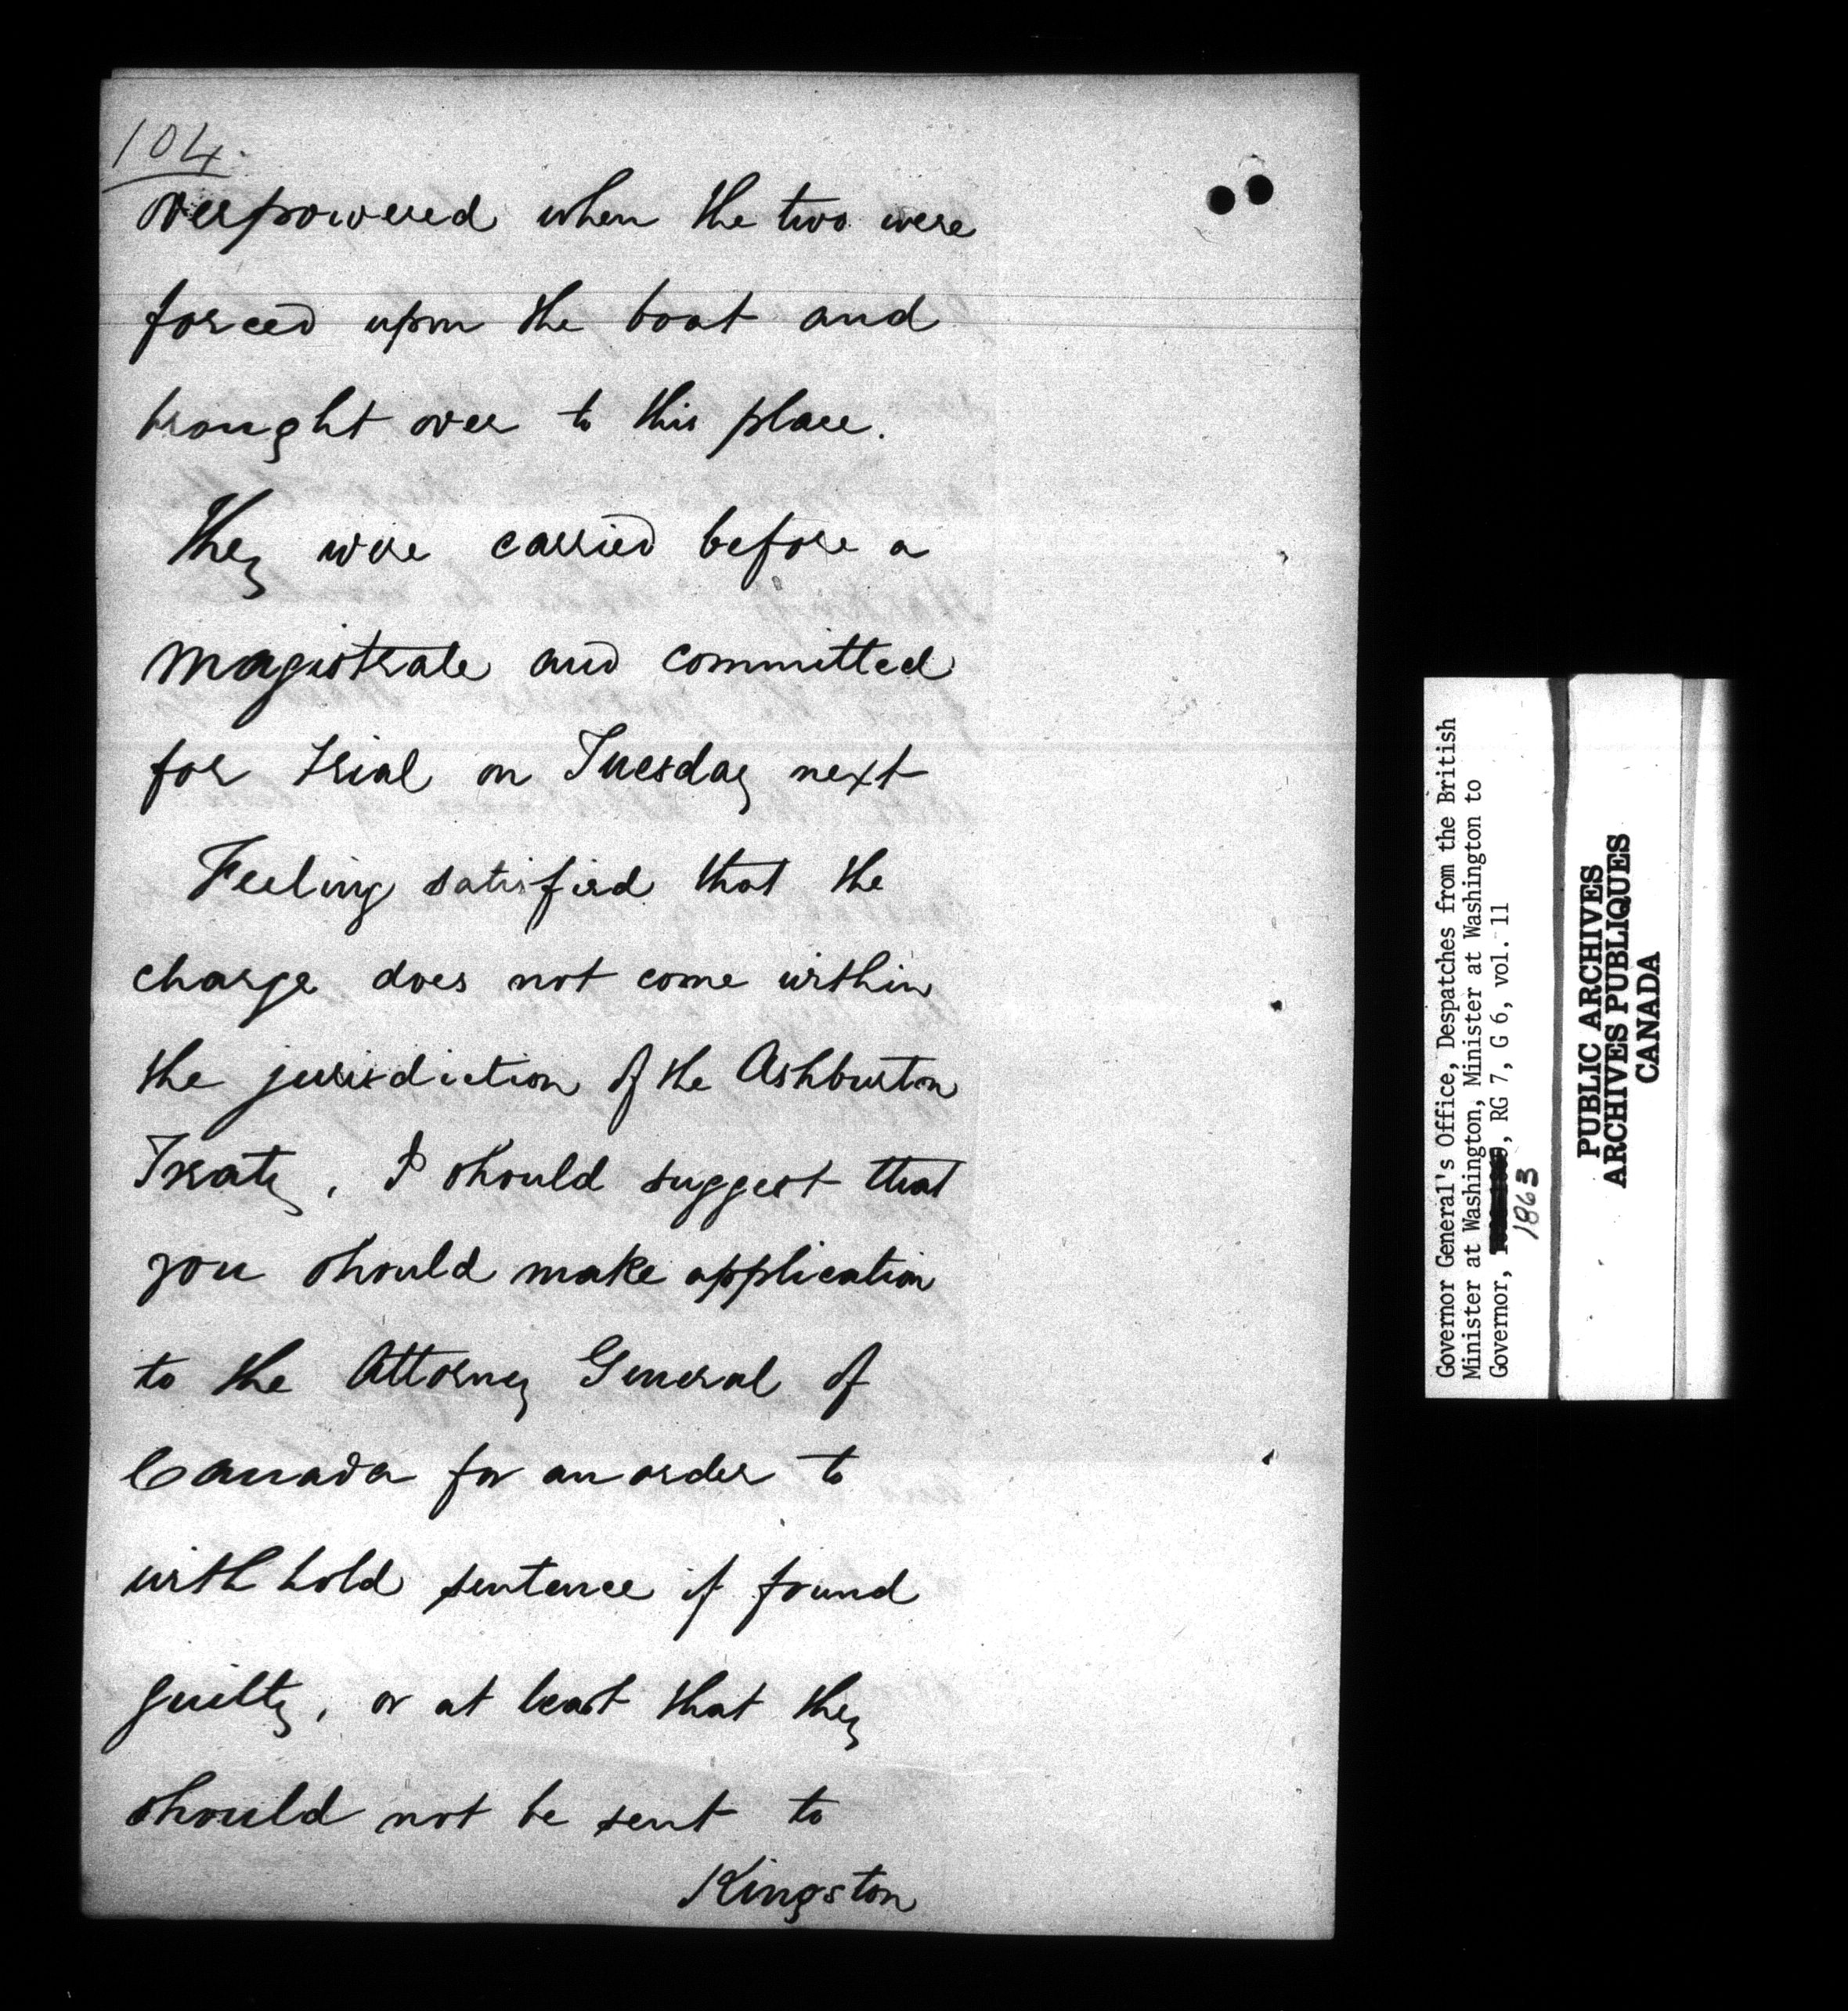 104.
overpowered when the two were
forced upon the boat and
brought over to this place.
They were carried before a
magistrate and committed
for trial on Tuesday next
Feeling satisfied that the
charge does not come within
the jurisdiction of the Ashburton
Treaty, I should suggest that
you should make application
to the Attorney General of
Canada for an order to
withhold sentence if found
guilty, or at least that they
should not be sent to
Kingston
Governor General's Office, Despatches from the British
Minister at Washington, Minister at Washington to
Governor, , RG 7, G 6, vol. 11
1863
PUBLIC ARCHIVES
ARCHIVES PUBLIQUES
CANADA